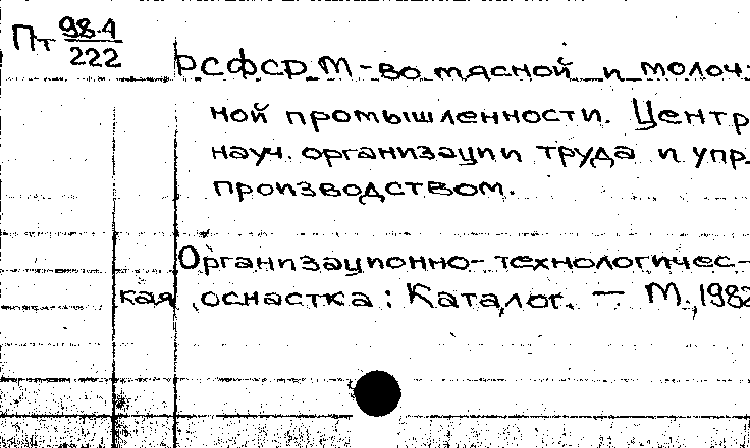 Пт 98.1
222
РСФСР. М-во мясной и молоч-
ной промышленности. Центр
науч. организации труда и упр.
производством.
Организационно-технологичес-
кая оснастка: Каталог. — М., 1982